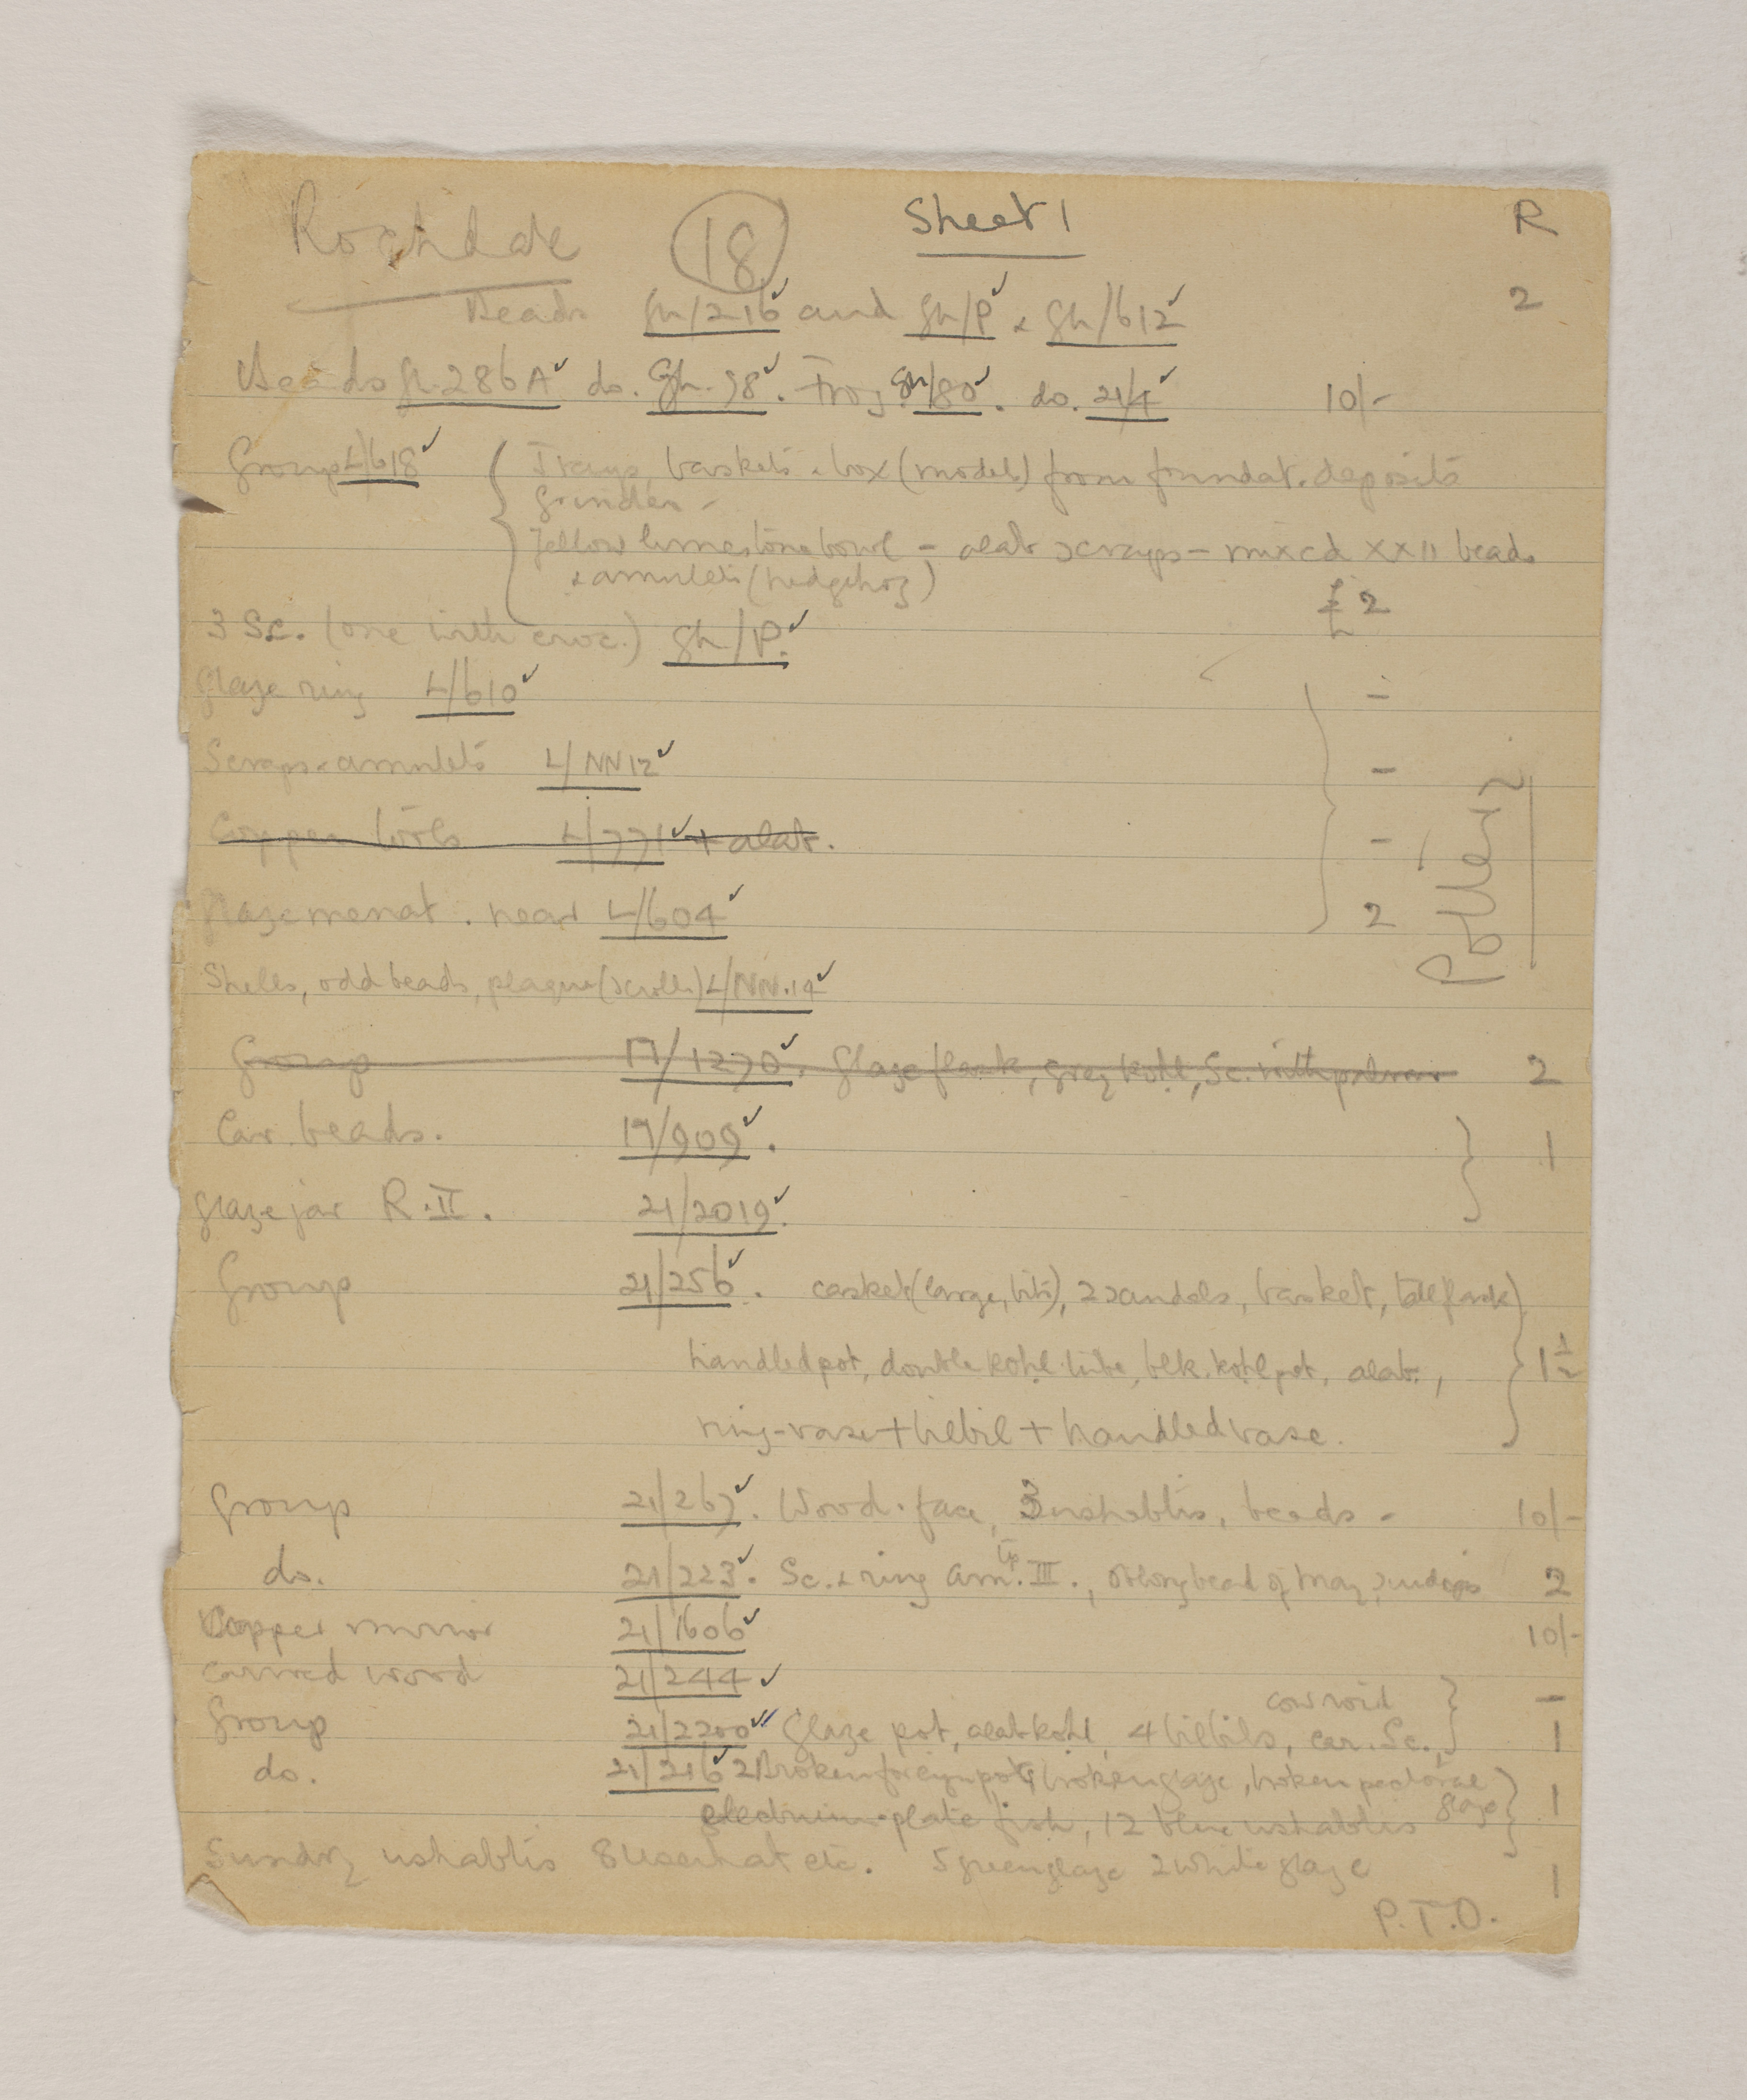 Rochdale (18) Sheet 1 R
Beads Gh/216 and Gh/P & Gh/612 2
Beads Gh.286A do. Gh.98. Frog Gh/80. do. 21/4 10/-
Group L/618 Trays, baskets & box (models) from foundat. deposits
Grinder -
Yellow limestone bowl - alab scraps - mixed XXII beads
& amulets (hedgehog)
£ 2
3 Sc. (one with croc.) Gh/P.
Glaze ring L/610 -
Scraps & amulets L/NN12 -
Copper tools L/771 + alab. -
Glaze menat. near L/604 2
Pottery
Shells, odd beads, plaque (scrolls) L/NN.14
Group 17/1270. Glaze flask, grey kohl, Sc. with 2
Car. beads. 17/909. 1
Glaze jar R.II. 21/2019.
Group 21/256. casket (large, bits), 2 sandals, basket, tall flask
handled pot, double kohl tube, blk. kohl pot, alab., 1½
ring-vase + bilbil + handled vase.
Group 21/267. Wood. face, 3 ushabtis, beads - 10/-
do. 21/223. Sc. & ring Am. III., bead of 2
Copper mirror 21/1606 10/-
Carved wood 21/244 -
cowroid
Group 21/2200 Glaze pot, alab kohl, 4 bilbils, car. Sc., 1
do. 21/216 2 Broken foreign pots, broken glaze, broken pectoral
glaze 1
plate fish, 12 blue ushabtis
Sundry ushabtis 8 Userhat etc. 5 green glaze 2 white glaze 1
P.T.O.